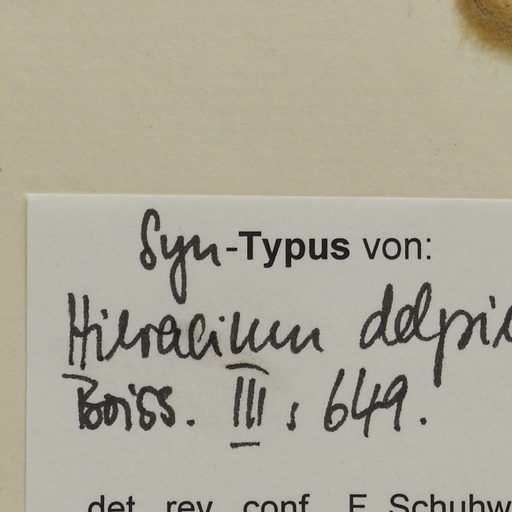 Syn-Typus von:
Hieracium
Boiss. III, 649.
det. rev. conf. F. Schuhw